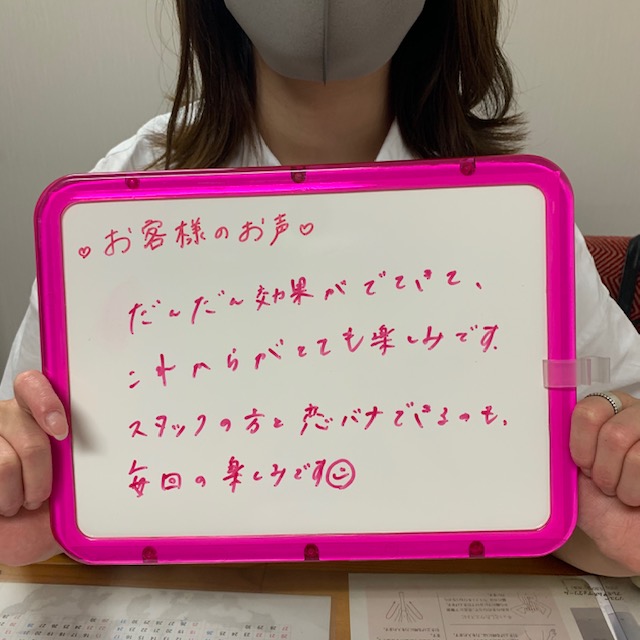 ♡お客様のお声♡
だんだん効果がでてきて、
これからがとても楽しみです.
スタッフの方と恋バナできるのも、
毎回の楽しみです☺